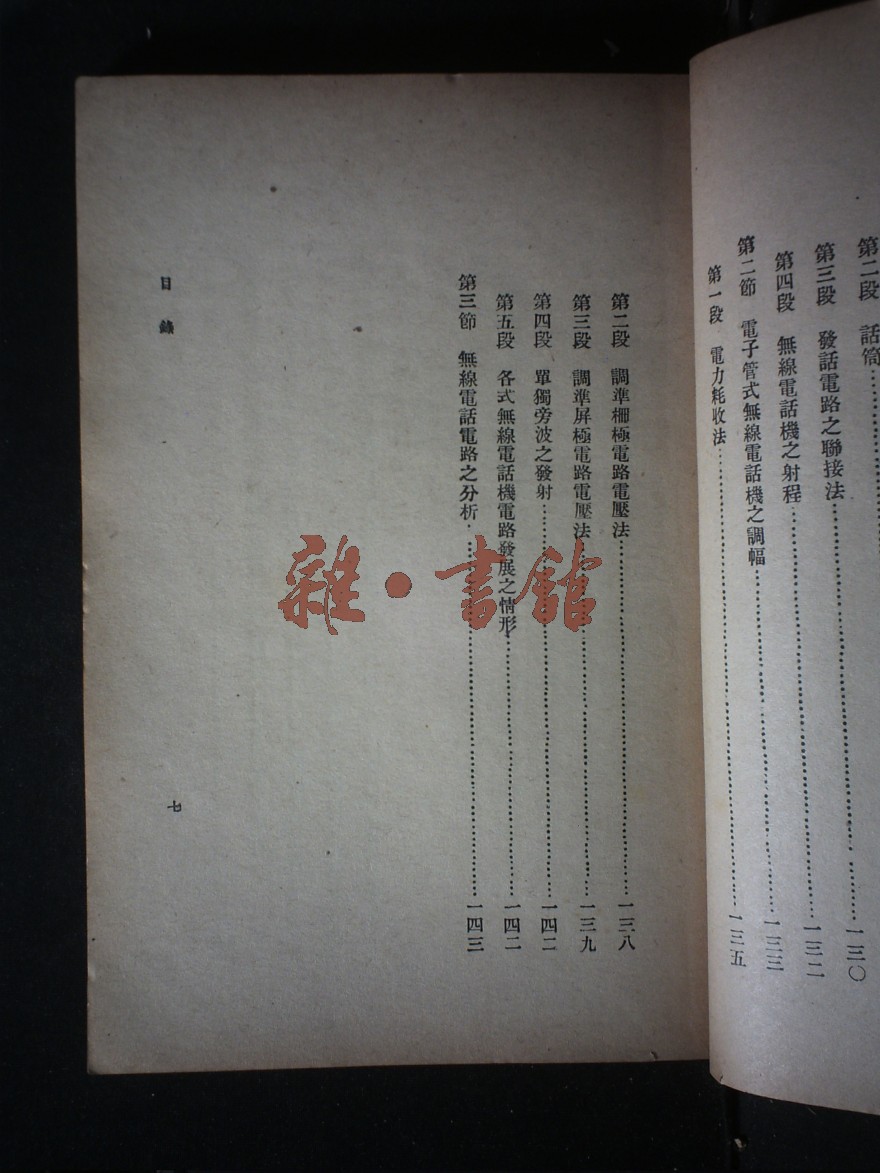 第二段　話筒……一三〇
第三段　發話電路之聯接法……一三二
第四段　無線電話機之射程……一三三
第二節　電子管式無線電話機之調幅……
第一段　電力耗收法……一三五
第二段　調準柵極電路電壓法……一三八
第三段　調準屏極電路電壓法……一三九
第四段　單獨旁波之發射……一四二
第五段　各式無線電話機電路發展之情形……一四二
第三節　無線電話電路之分析……一四三
目錄
七
雜·書館